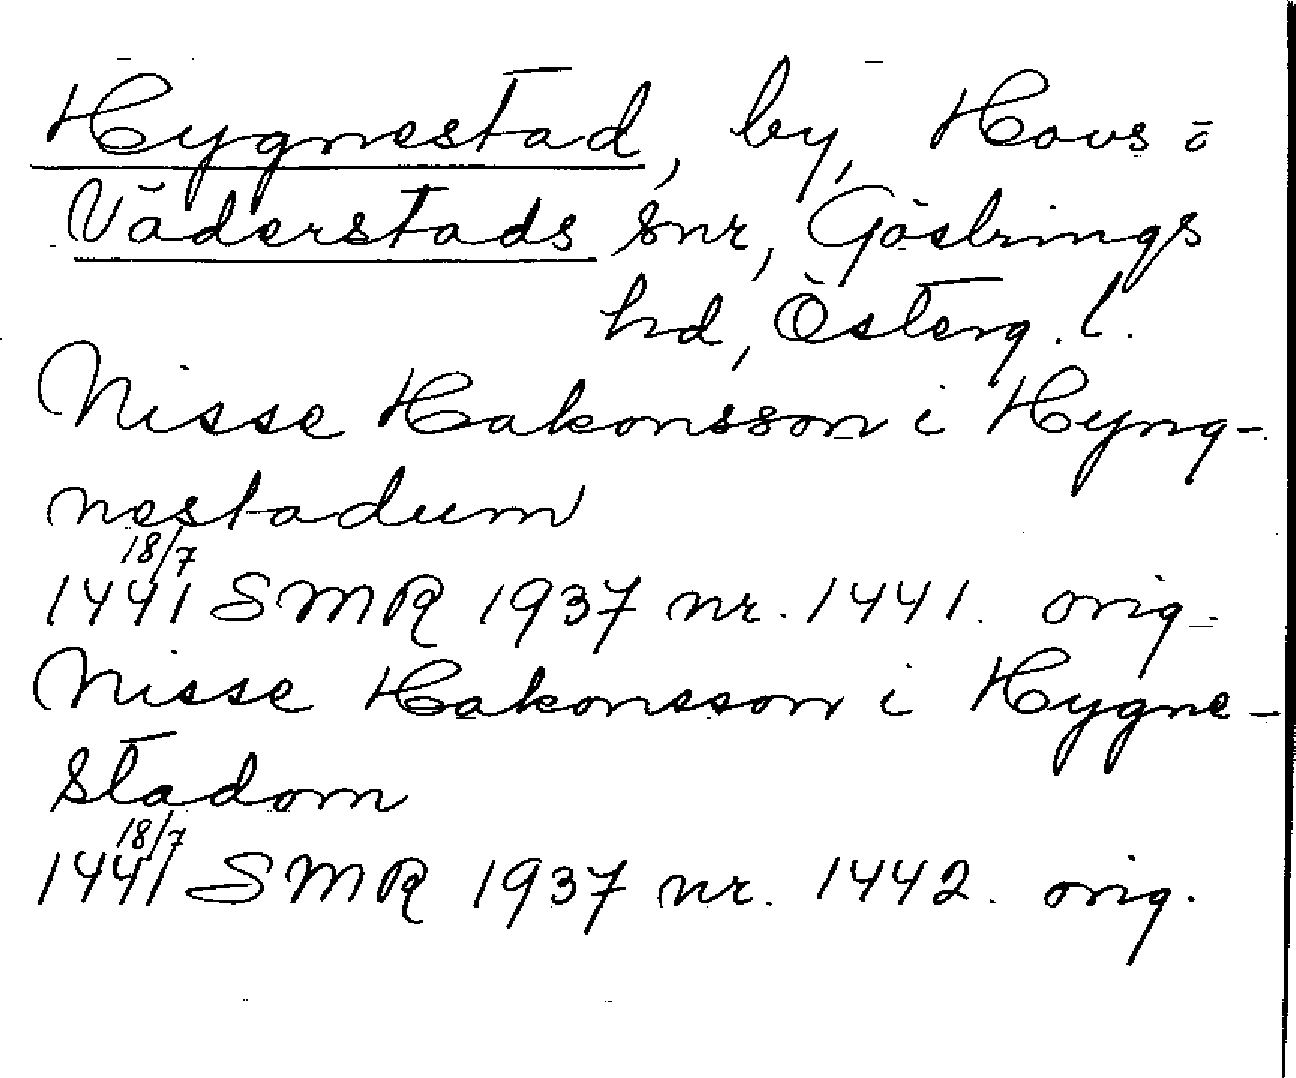 Hygnestad, by, Hovs o
Väderstads snr, Göstrings
hd, Österg. l.
Nisse Hakonsson i Hyng-
nestadum
18/7
1441 SMR 1937 nr. 1441. orig.
Nisse Hakonsson i Hygne-
stadom
18/7
1441 SMR 1937 nr. 1442. orig.